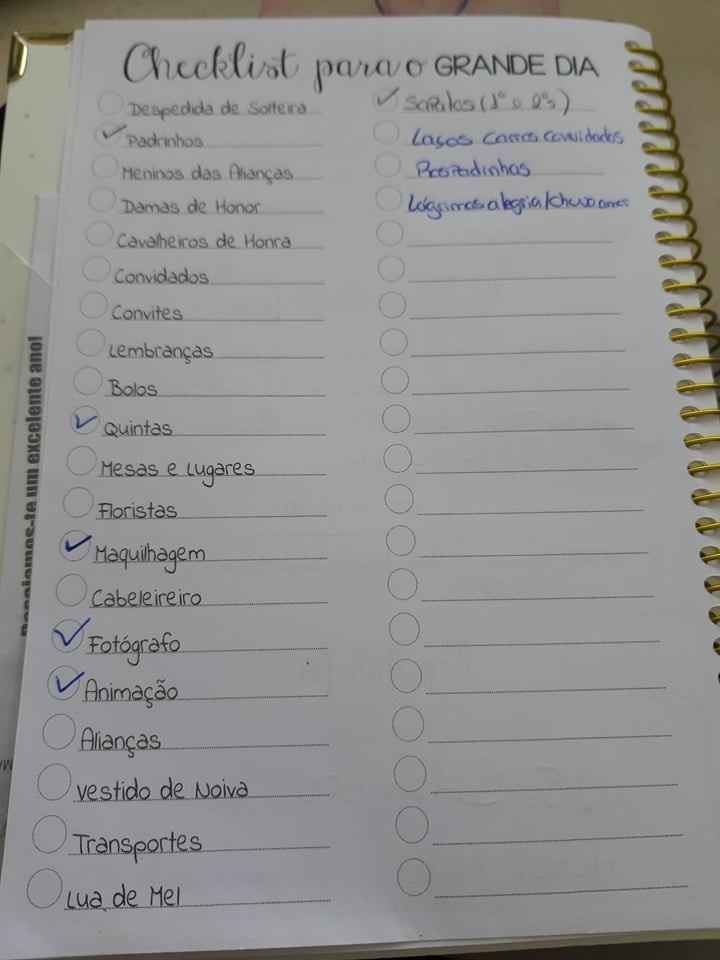 Checklist para o GRANDE DIA
Despedida de Solteira
Padrinhos
Meninos das Alianças
Damas de Honor
Cavalheiros de Honra
Convidados
Convites
Lembranças
Bolos
Quintas
Mesas e Lugares
Floristas
Maquilhagem
Cabeleireiro
Fotógrafo
Animação
Alianças
Vestido de Noiva
Transportes
Lua de Mel
Sapatos (1º e 2ºs)
Laços carros convidados
Lágrimas alegria/chuva
-te um excelente ano!